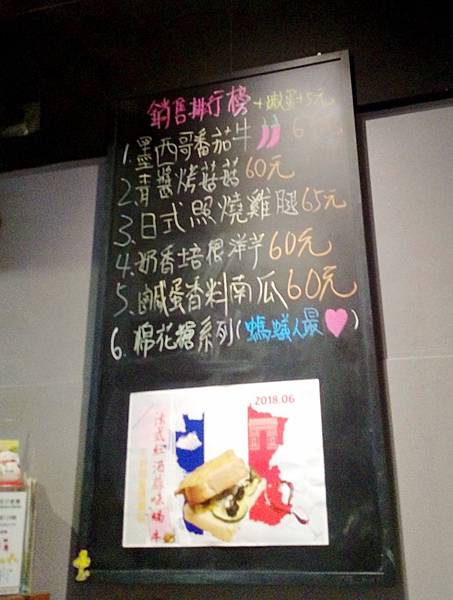 銷售排行榜 +嫩蛋+5元
1. 墨西哥番茄牛 6
2. 青醬烤菇菇 60元
3. 日式照燒雞腿 65元
4. 奶香培根洋芋 60元
5. 鹹蛋香料南瓜 60元
6. 棉花糖系列(螞蟻人最♥)
2018.06
法式紅酒蒜味蝸牛